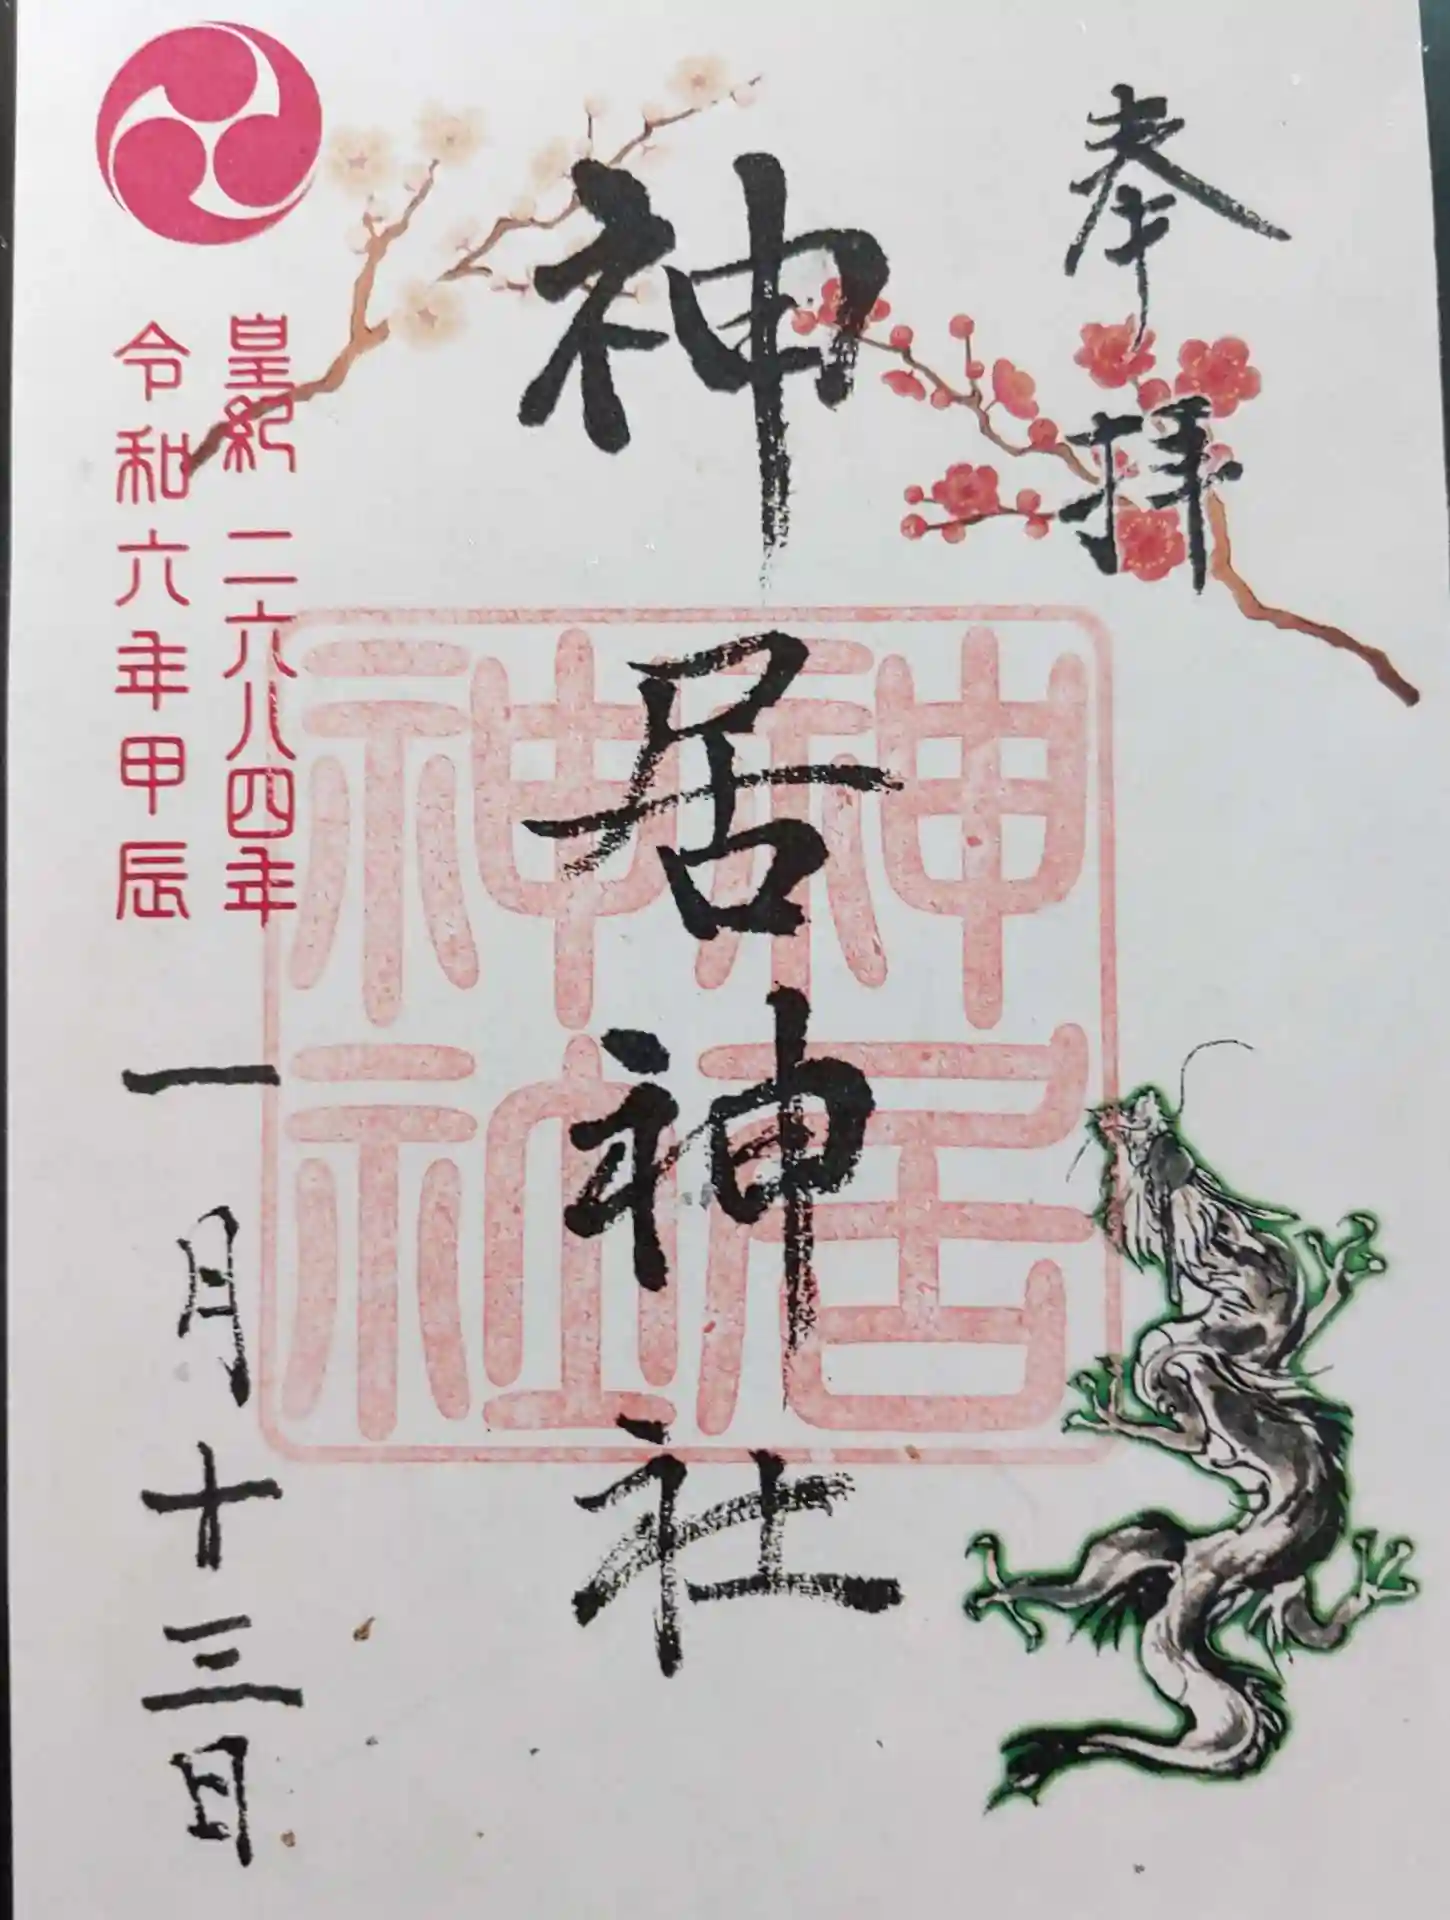 奉拝
神居神社
神居神社
皇紀 二六八四年
令和六年甲辰
一月十三日